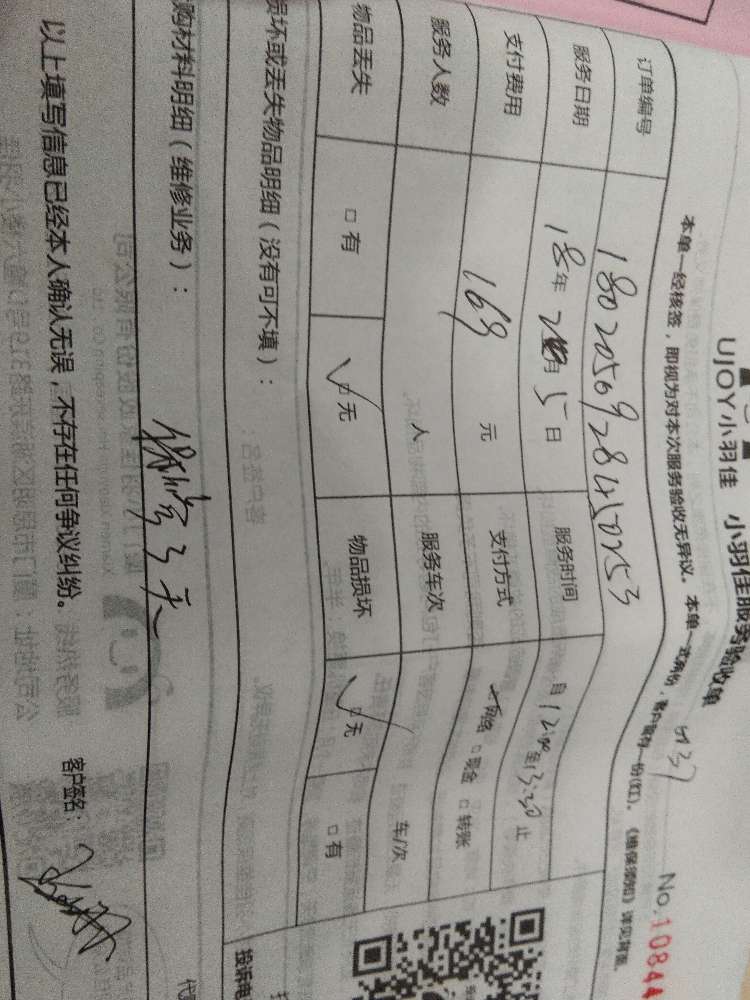 UJOY小羽佳 小羽佳服务验收单
No:10844
本单一经核签，即视为对本次服务验收无异议。本单一式两份，客户留存一份(红)。《维保须知》详见背面。
订单编号 1802050928450253
服务日期 18年 2月5日 服务时间 自12:00至13:30止
支付费用 169 元 支付方式 网络 □现金 □转账
服务人数 人 服务车次 车/次
物品丢失 □有 □无 物品损坏 □无 □有
损坏或丢失物品明细（没有可不填）：
购材料明细（维修业务）：
以上填写信息已经本人确认无误，不存在任何争议纠纷。
客户签名：
投诉电